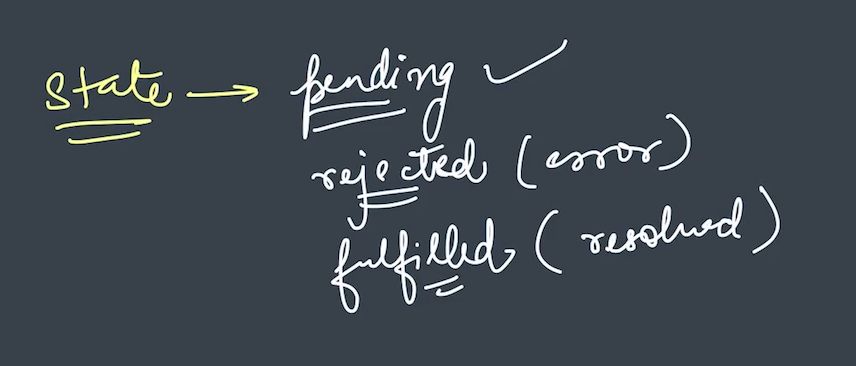 state → pending ✓
rejected (error)
fulfilled (resolved)